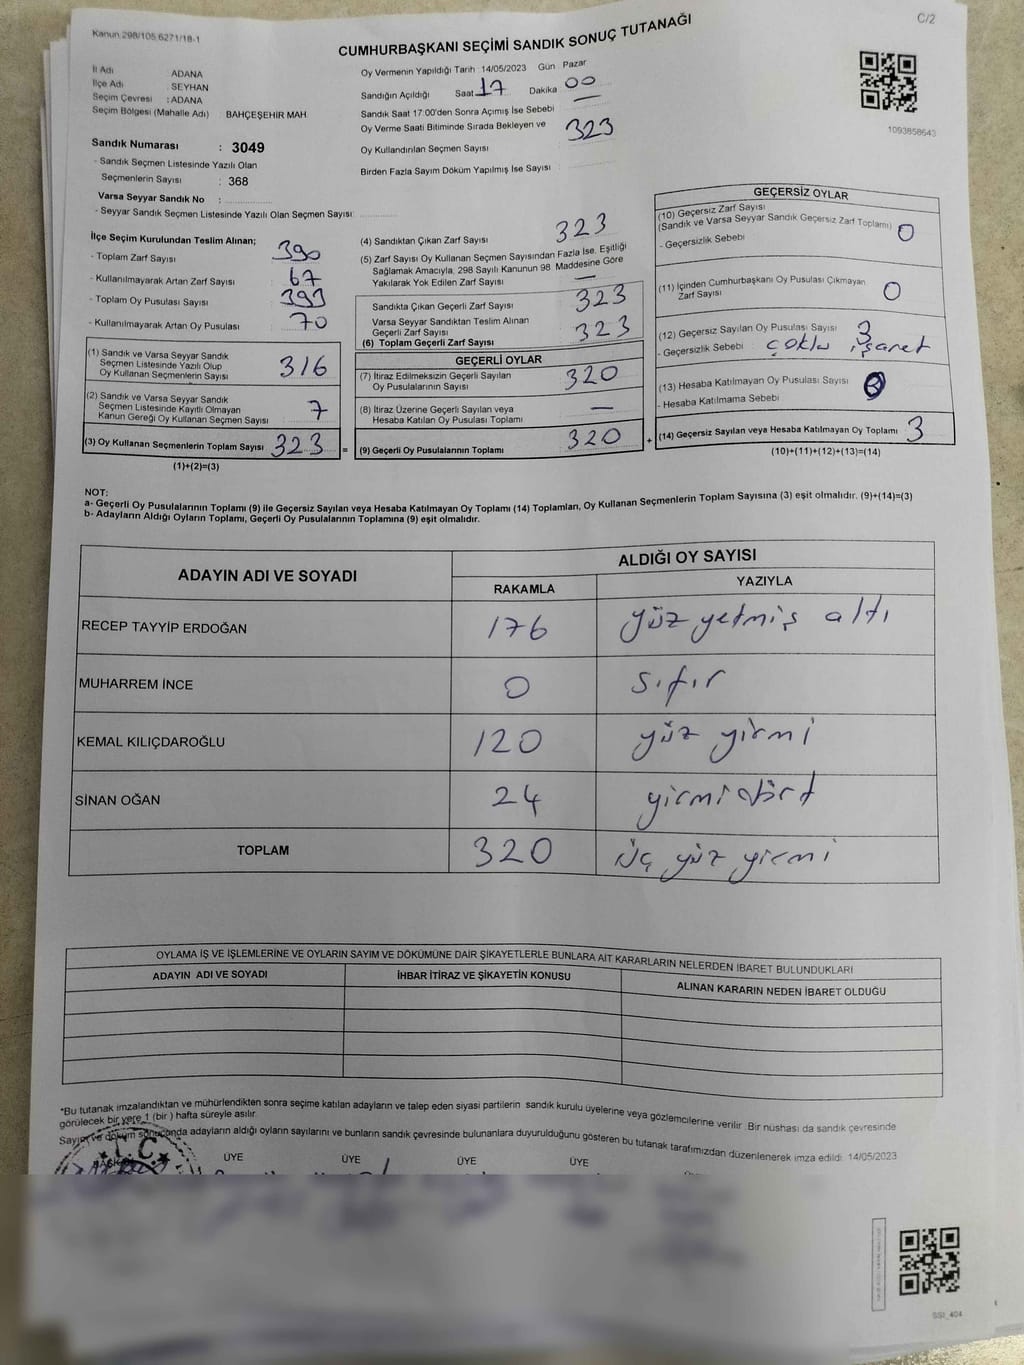 Kanun 298/105 6271/18-1
C/2
CUMHURBAŞKANI SEÇİMİ SANDIK SONUÇ TUTANAĞI
İl Adı ADANA
İlçe Adı SEYHAN
Seçim Çevresi : ADANA
Seçim Bölgesi (Mahalle Adı) BAHÇEŞEHİR MAH.
Sandık Numarası : 3049
- Sandık Seçmen Listesinde Yazılı Olan
Seçmenlerin Sayısı : 368
Varsa Seyyar Sandık No :
- Seyyar Sandık Seçmen Listesinde Yazılı Olan Seçmen Sayısı:
Oy Vermenin Yapıldığı Tarih 14/05/2023 Gün Pazar
Sandığın Açıldığı Saat 17 Dakika 00
Sandık Saat 17:00'den Sonra Açımış İse Sebebi —
Oy Verme Saati Bitiminde Sırada Bekleyen ve 323
Oy Kullandırılan Seçmen Sayısı
Birden Fazla Sayım Döküm Yapılmış İse Sayısı
1093858643
İlçe Seçim Kurulundan Teslim Alınan;
- Toplam Zarf Sayısı 390
- Kullanılmayarak Artan Zarf Sayısı 67
- Toplam Oy Pusulası Sayısı 393
- Kullanılmayarak Artan Oy Pusulası 70
(1) Sandık ve Varsa Seyyar Sandık
Seçmen Listesinde Yazılı Olup
Oy Kullanan Seçmenlerin Sayısı 316
(2) Sandık ve Varsa Seyyar Sandık
Seçmen Listesinde Kayıtlı Olmayan
Kanun Gereği Oy Kullanan Seçmen Sayısı 7
(3) Oy Kullanan Seçmenlerin Toplam Sayısı 323 =
(1)+(2)=(3)
(4) Sandıktan Çıkan Zarf Sayısı 323
(5) Zarf Sayısı Oy Kullanan Seçmen Sayısından Fazla İse, Eşitliği
Sağlamak Amacıyla, 298 Sayılı Kanunun 98. Maddesine Göre
Yakılarak Yok Edilen Zarf Sayısı —
Sandıkta Çıkan Geçerli Zarf Sayısı 323
Varsa Seyyar Sandıktan Teslim Alınan
Geçerli Zarf Sayısı
(6) Toplam Geçerli Zarf Sayısı 323
GEÇERLİ OYLAR
(7) İtiraz Edilmeksizin Geçerli Sayılan
Oy Pusulalarının Sayısı 320
(8) İtiraz Üzerine Geçerli Sayılan veya
Hesaba Katılan Oy Pusulası Toplamı —
(9) Geçerli Oy Pusulalarının Toplamı 320 +
GEÇERSİZ OYLAR
(10) Geçersiz Zarf Sayısı
(Sandık ve Varsa Seyyar Sandık Geçersiz Zarf Toplamı) 0
- Geçersizlik Sebebi
(11) İçinden Cumhurbaşkanı Oy Pusulası Çıkmayan
Zarf Sayısı 0
(12) Geçersiz Sayılan Oy Pusulası Sayısı 3
- Geçersizlik Sebebi çoklu işaret
(13) Hesaba Katılmayan Oy Pusulası Sayısı
- Hesaba Katılmama Sebebi
(14) Geçersiz Sayılan veya Hesaba Katılmayan Oy Toplamı 3
(10)+(11)+(12)+(13)=(14)
NOT:
a- Geçerli Oy Pusulalarının Toplamı (9) ile Geçersiz Sayılan veya Hesaba Katılmayan Oy Toplamı (14) Toplamları, Oy Kullanan Seçmenlerin Toplam Sayısına (3) eşit olmalıdır. (9)+(14)=(3)
b- Adayların Aldığı Oyların Toplamı, Geçerli Oy Pusulalarının Toplamına (9) eşit olmalıdır.
ADAYIN ADI VE SOYADI ALDIĞI OY SAYISI
RAKAMLA YAZIYLA
RECEP TAYYİP ERDOĞAN 176 yüz yetmiş altı
MUHARREM İNCE 0 sıfır
KEMAL KILIÇDAROĞLU 120 yüz yirmi
SİNAN OĞAN 24 yirmi dört
TOPLAM 320 üç yüz yirmi
OYLAMA İŞ VE İŞLEMLERİNE VE OYLARIN SAYIM VE DÖKÜMÜNE DAİR ŞİKAYETLERLE BUNLARA AİT KARARLARIN NELERDEN İBARET BULUNDUKLARI
ADAYIN ADI VE SOYADI İHBAR İTİRAZ VE ŞİKAYETİN KONUSU ALINAN KARARIN NEDEN İBARET OLDUĞU
*Bu tutanak imzalandıktan ve mühürlendikten sonra seçime katılan adayların ve talep eden siyasi partilerin sandık kurulu üyelerine veya gözlemcilerine verilir. Bir nüshası da sandık çevresinde
görülecek bir yere 1 (bir) hafta süreyle asılır.
Sayım ve döküm sonucunda adayların aldığı oyların sayılarını ve bunların sandık çevresinde bulunanlara duyurulduğunu gösteren bu tutanak tarafımızdan düzenlenerek imza edildi. 14/05/2023
T.C.
ÜYE ÜYE ÜYE ÜYE
SSI_404